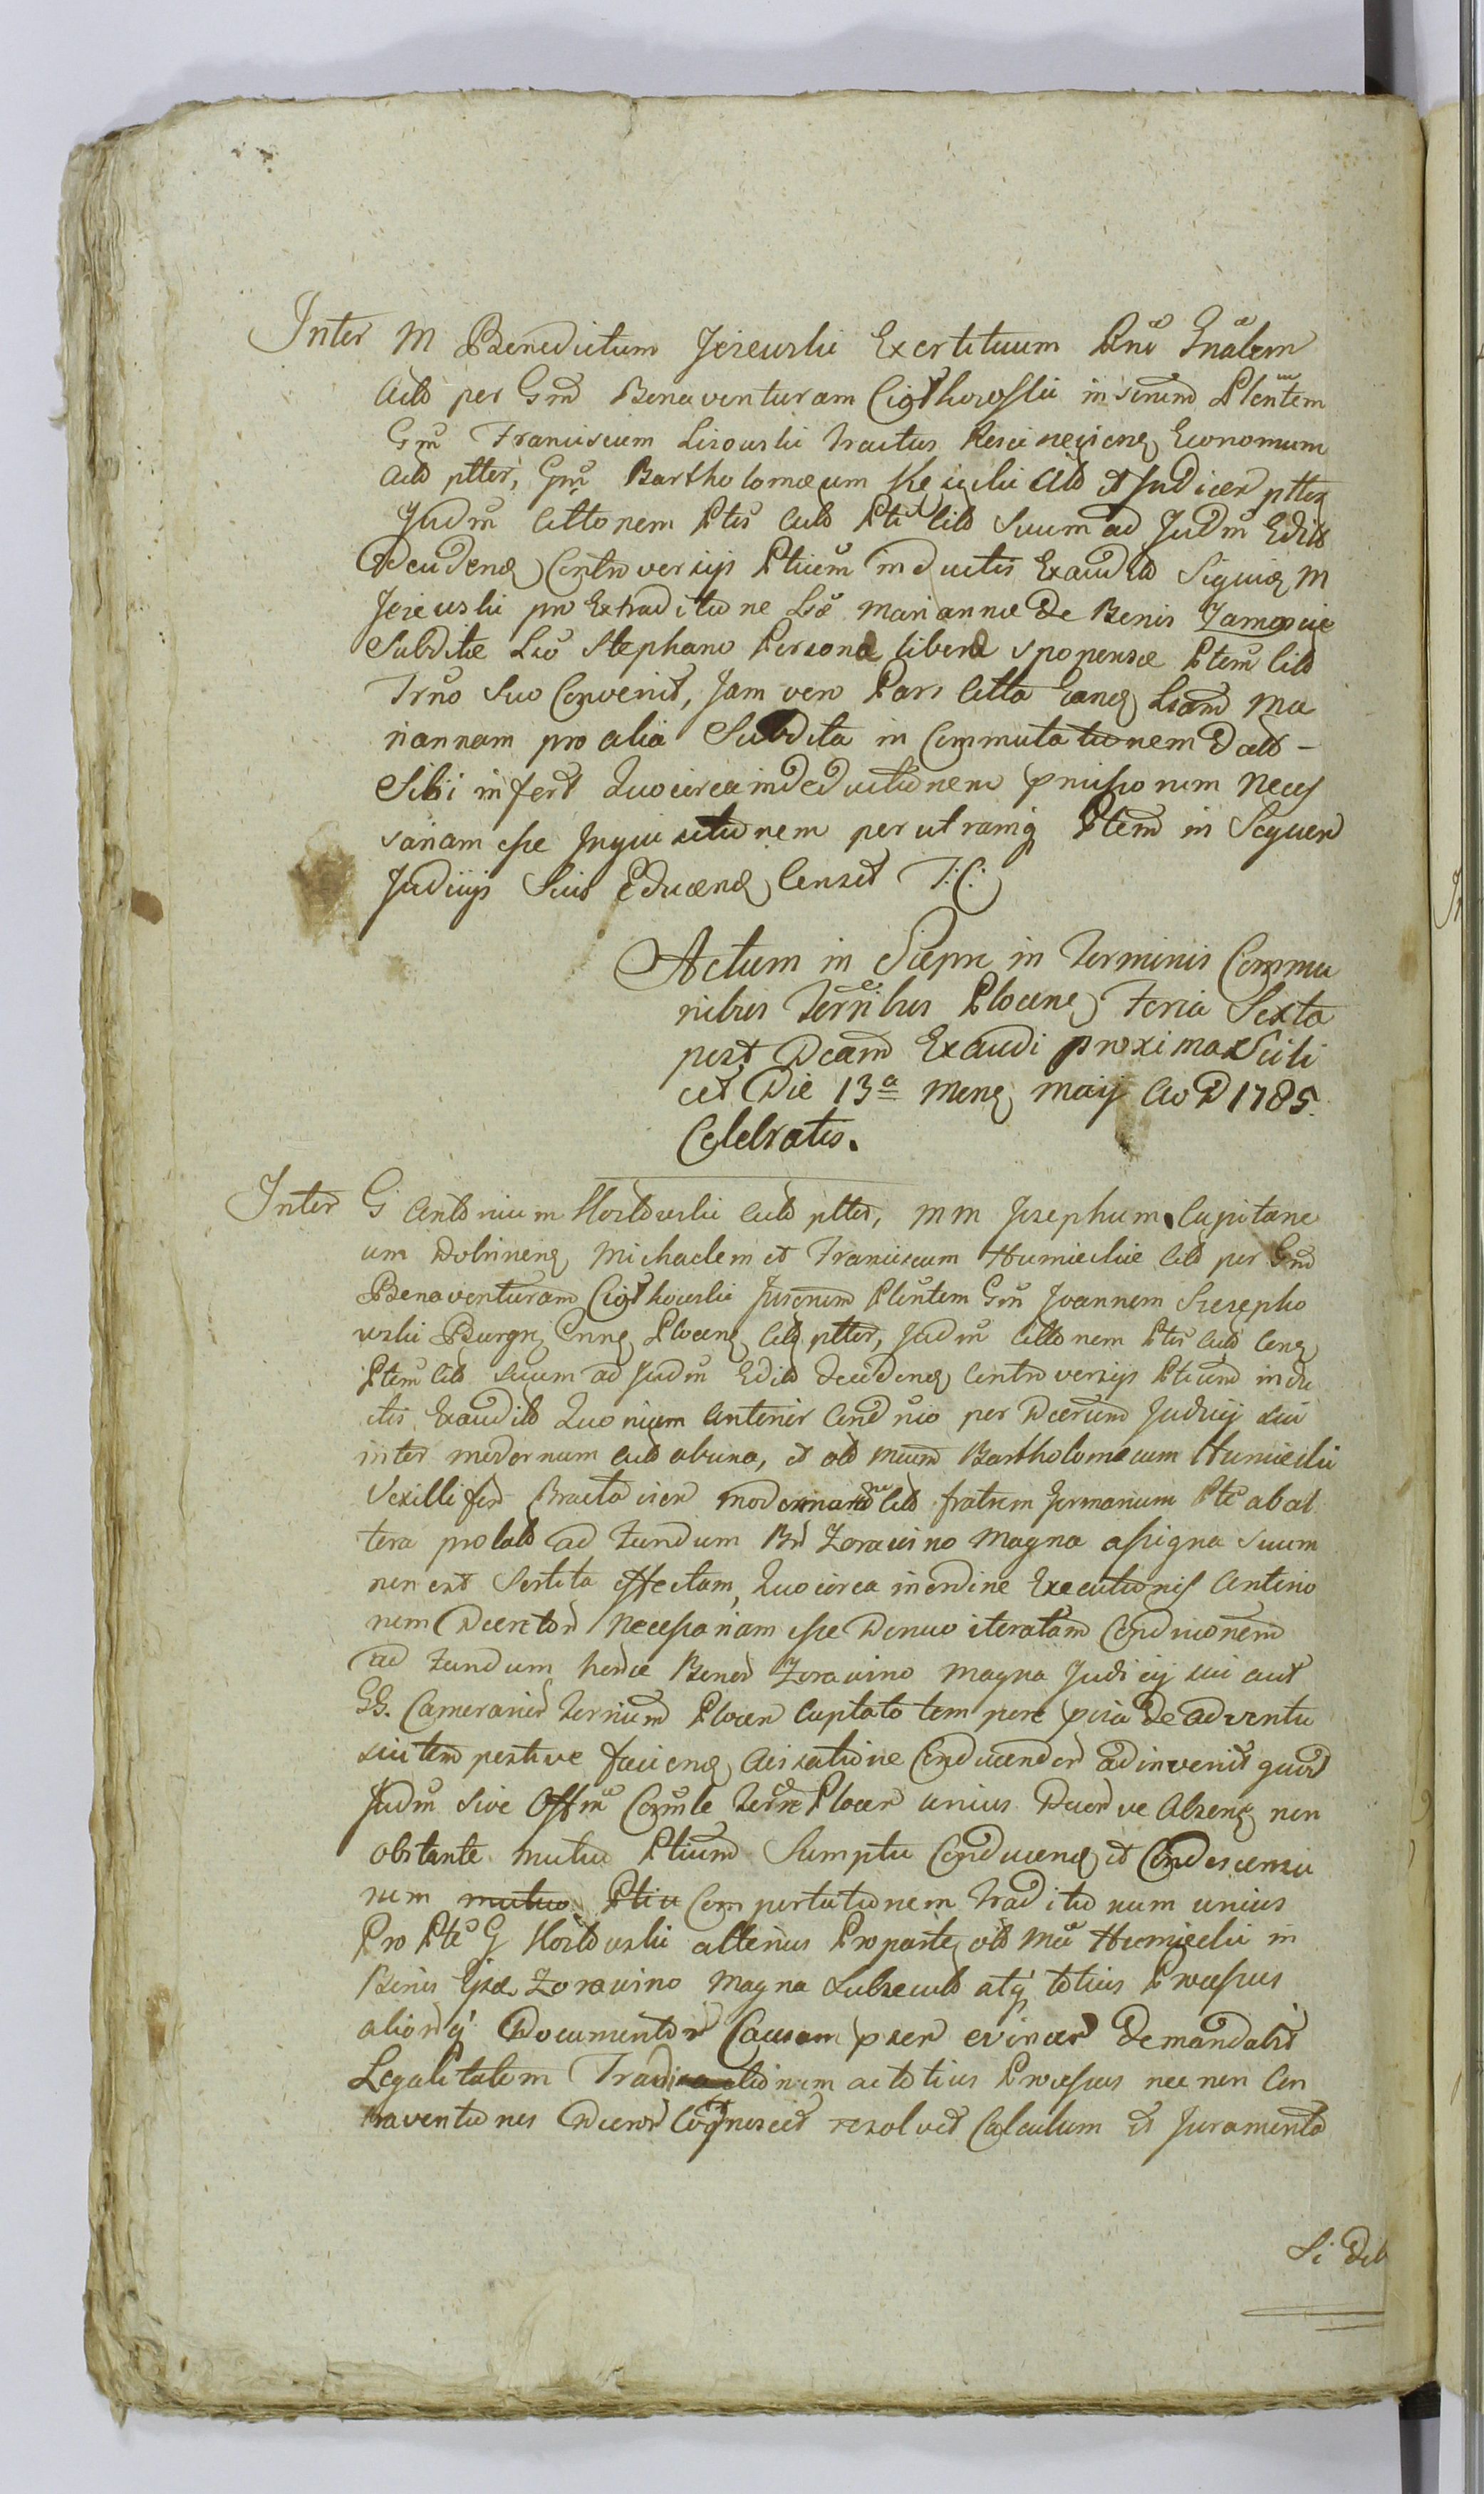 Inter M Benedictum Jezewski Exercituum Rni Gnalem
Acto per Gnd Bonaventuram insernd Plentem
Gnu Franciscum Lisowski tractus Economum
Acto ptter, Gnu Bartholomæum Ke Ab et Judicem ptter
Judm Cittonem Ptis Acto Pti Cito Suum ad Judm Edito
Decidend Controversijs Ptium inductis Exaudito Siquid M
Jezewski pro Extraditione Lsæ Mariannæ de Bonis Zamoscie
Subditæ Lso Stephano Persona libera sponsæ Ptem Cito
Trno Suo Convenit, Jam vero Pars Citta Eanq Lsam Ma
riannam pro alia Subdita in Commutationem Dato -
Sibi infert Quocirca in deductionem pmissorum Neces
sariam esse Inquisitionem per utramq Ptem in Sequen
Judicijs Suis Educend Censet T: C:
Actum in Sierpc in Terminis Commu
nibus Terribus Plocens Feria Sexta
post Dcam Exaudi proxima Scili
cet Die 13a Mens Maij Ao D 1785.
Celebratis.
Inter G Antonium Kosłowski Acto ptter, MM Josephum Capitane
um Dobrinens Michaelem et Franciscum Humieckie Cito per Gnd
Bonaventuram Plentem Gnu Joannem Szczepko
wski Burgr Plocens Cito ptter, Judm Cittonem Ptis Acto
Ptem Cito Suum ad Judm Edito Decidend Controversijs Ptium indu
ctis Exaudito Quoniam Anterior per Decretum Judicij sui
inter modernum Acto ab una, et olim Mcum Bartholomæum Humiecki
Vexillifer modernorum Cito fratrem Germanum Pte ab al
tera prolato ad Fundum Bon Zorawino Magna assignatum
non est Sortita effectum, Quocirca in ordine Executionis Anterio
rum Decretor Necessariam esse Denuo iteratam Conductionem
ad Fundum Bonor Zorawino Magna Judicij sui aut
GG. Camerarior Terrium Plocen Captato tempore de adventu
sui tempestive faciend Conducendor adinvenit quod
Judm sive Offm Terræ Plocen unius Duor ve Absens non
obstante mutuo Ptium Sumptu Conducend et Condescensu
rum mutuo Ptiu Comportationem Traditionum unius
Pro Pte G Kosłowski alterius Pro parte olim Mci Humiecki in
Bonis Zorawino Magna Subsecuto atq totius Processus
aliorq Documentor Causam demandabit
Legalitatem Traditionum ac totius Processus nec non Con
traventiones Decretor Cognoscet resolvet Calculum et Juramenta
Si Deb